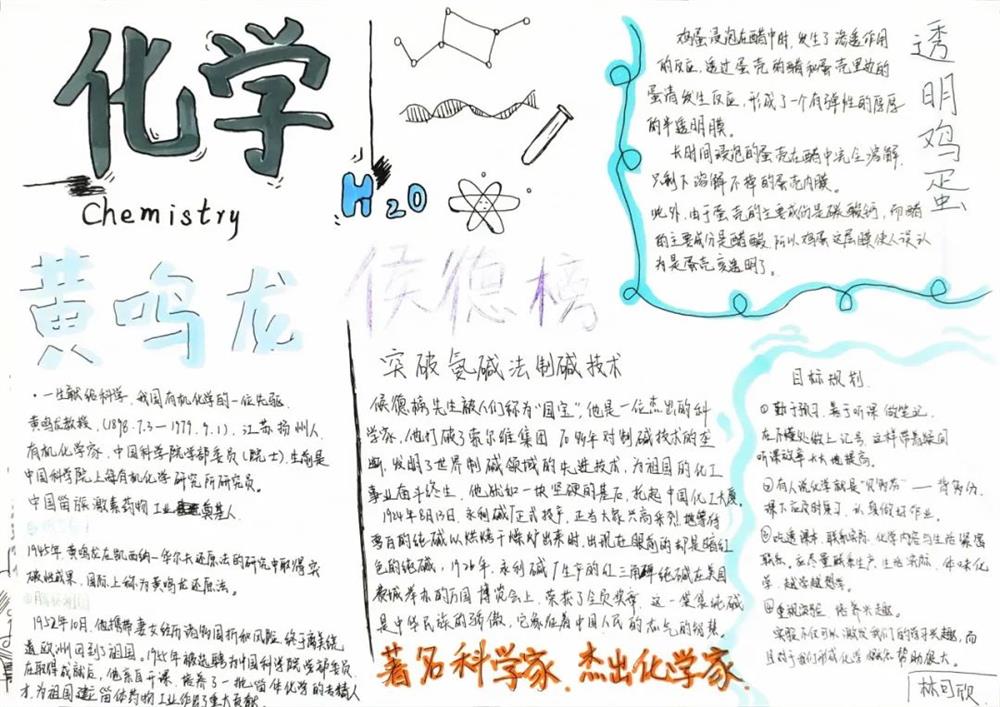 化学
Chemistry
H2O
透明鸡蛋
鸡蛋浸泡在醋中时,发生了渗透作用
的反应,透过蛋壳的醋和蛋壳里边的
蛋清发生反应,形成了一个有弹性的厚厚
的半透明膜。
长时间浸泡的蛋壳在醋中完全溶解,
只剩下溶解不掉的蛋壳内膜。
此外,由于蛋壳的主要成份是碳酸钙,而醋
的主要成分是醋酸,所以鸡蛋这层膜使人误认
为是蛋壳变透明了。
黄鸣龙
·一生献给科学,我国有机化学的一位先驱.
黄鸣龙教授,(1898.7.3—1979.7.1),江苏扬州人,
有机化学家,中国科学院学部委员(院士),生前是
中国科学院上海有机化学研究所研究员。
中国甾族激素药物工业奠基人.
1945年,黄鸣龙在凯西纳—华尔夫还原法的研究中取得突
破性成果,国际上称为黄鸣龙还原法。
1952年10月,他携带妻女经历诸物国折和风险,终于离美绕
道欧洲回到了祖国。1955年被选聘为中国科学院学部委员.
在取得成就后,他亲自开课,培养了一批甾体化学的专精人
才,为祖国建立甾体药物工业作出了重大贡献.
侯德榜
突破氨碱法制碱技术
侯德榜先生被人们称为“国宝”,他是一位杰出的科
学家,他打破了索尔维集团70多年对制碱技术的垄
断,发明了世界制碱领域的先进技术,为祖国的化工
事业奋斗终生,他就如一块坚硬的基石,托起中国化工大厦.
1924年8月13日,永利碱厂正式投产,正当大家兴高采烈地等待
雪白的纯碱从烘烤干燥炉出来时,出现在眼前的却是暗红
色的纯碱,1926年,永利碱厂生产的红三角牌纯碱在美国
费城举办的万国博览会上,荣获了金质奖章,这一袋袋纯碱
是中华民族的骄傲,它象征着中国人民的志气的智慧.
著名科学家.杰出化学家.
目标规划.
①勤于预习,善于听课做笔记.
在不懂处做上记号,这样带着疑问
听课效率大大地提高。
②有人说化学就是“ ”——背多份,
课下应及时复习,认真做好作业。
③吃透课本,联系实际,化学内容与生活紧密
联系,应尽量联系生产、生活实际,体味化
学,越学越想学。
④重视实验,培养兴趣。
实验不仅可以激发我们的学习兴趣,而
且对于我们形成化学概念帮助很大。
林可欣